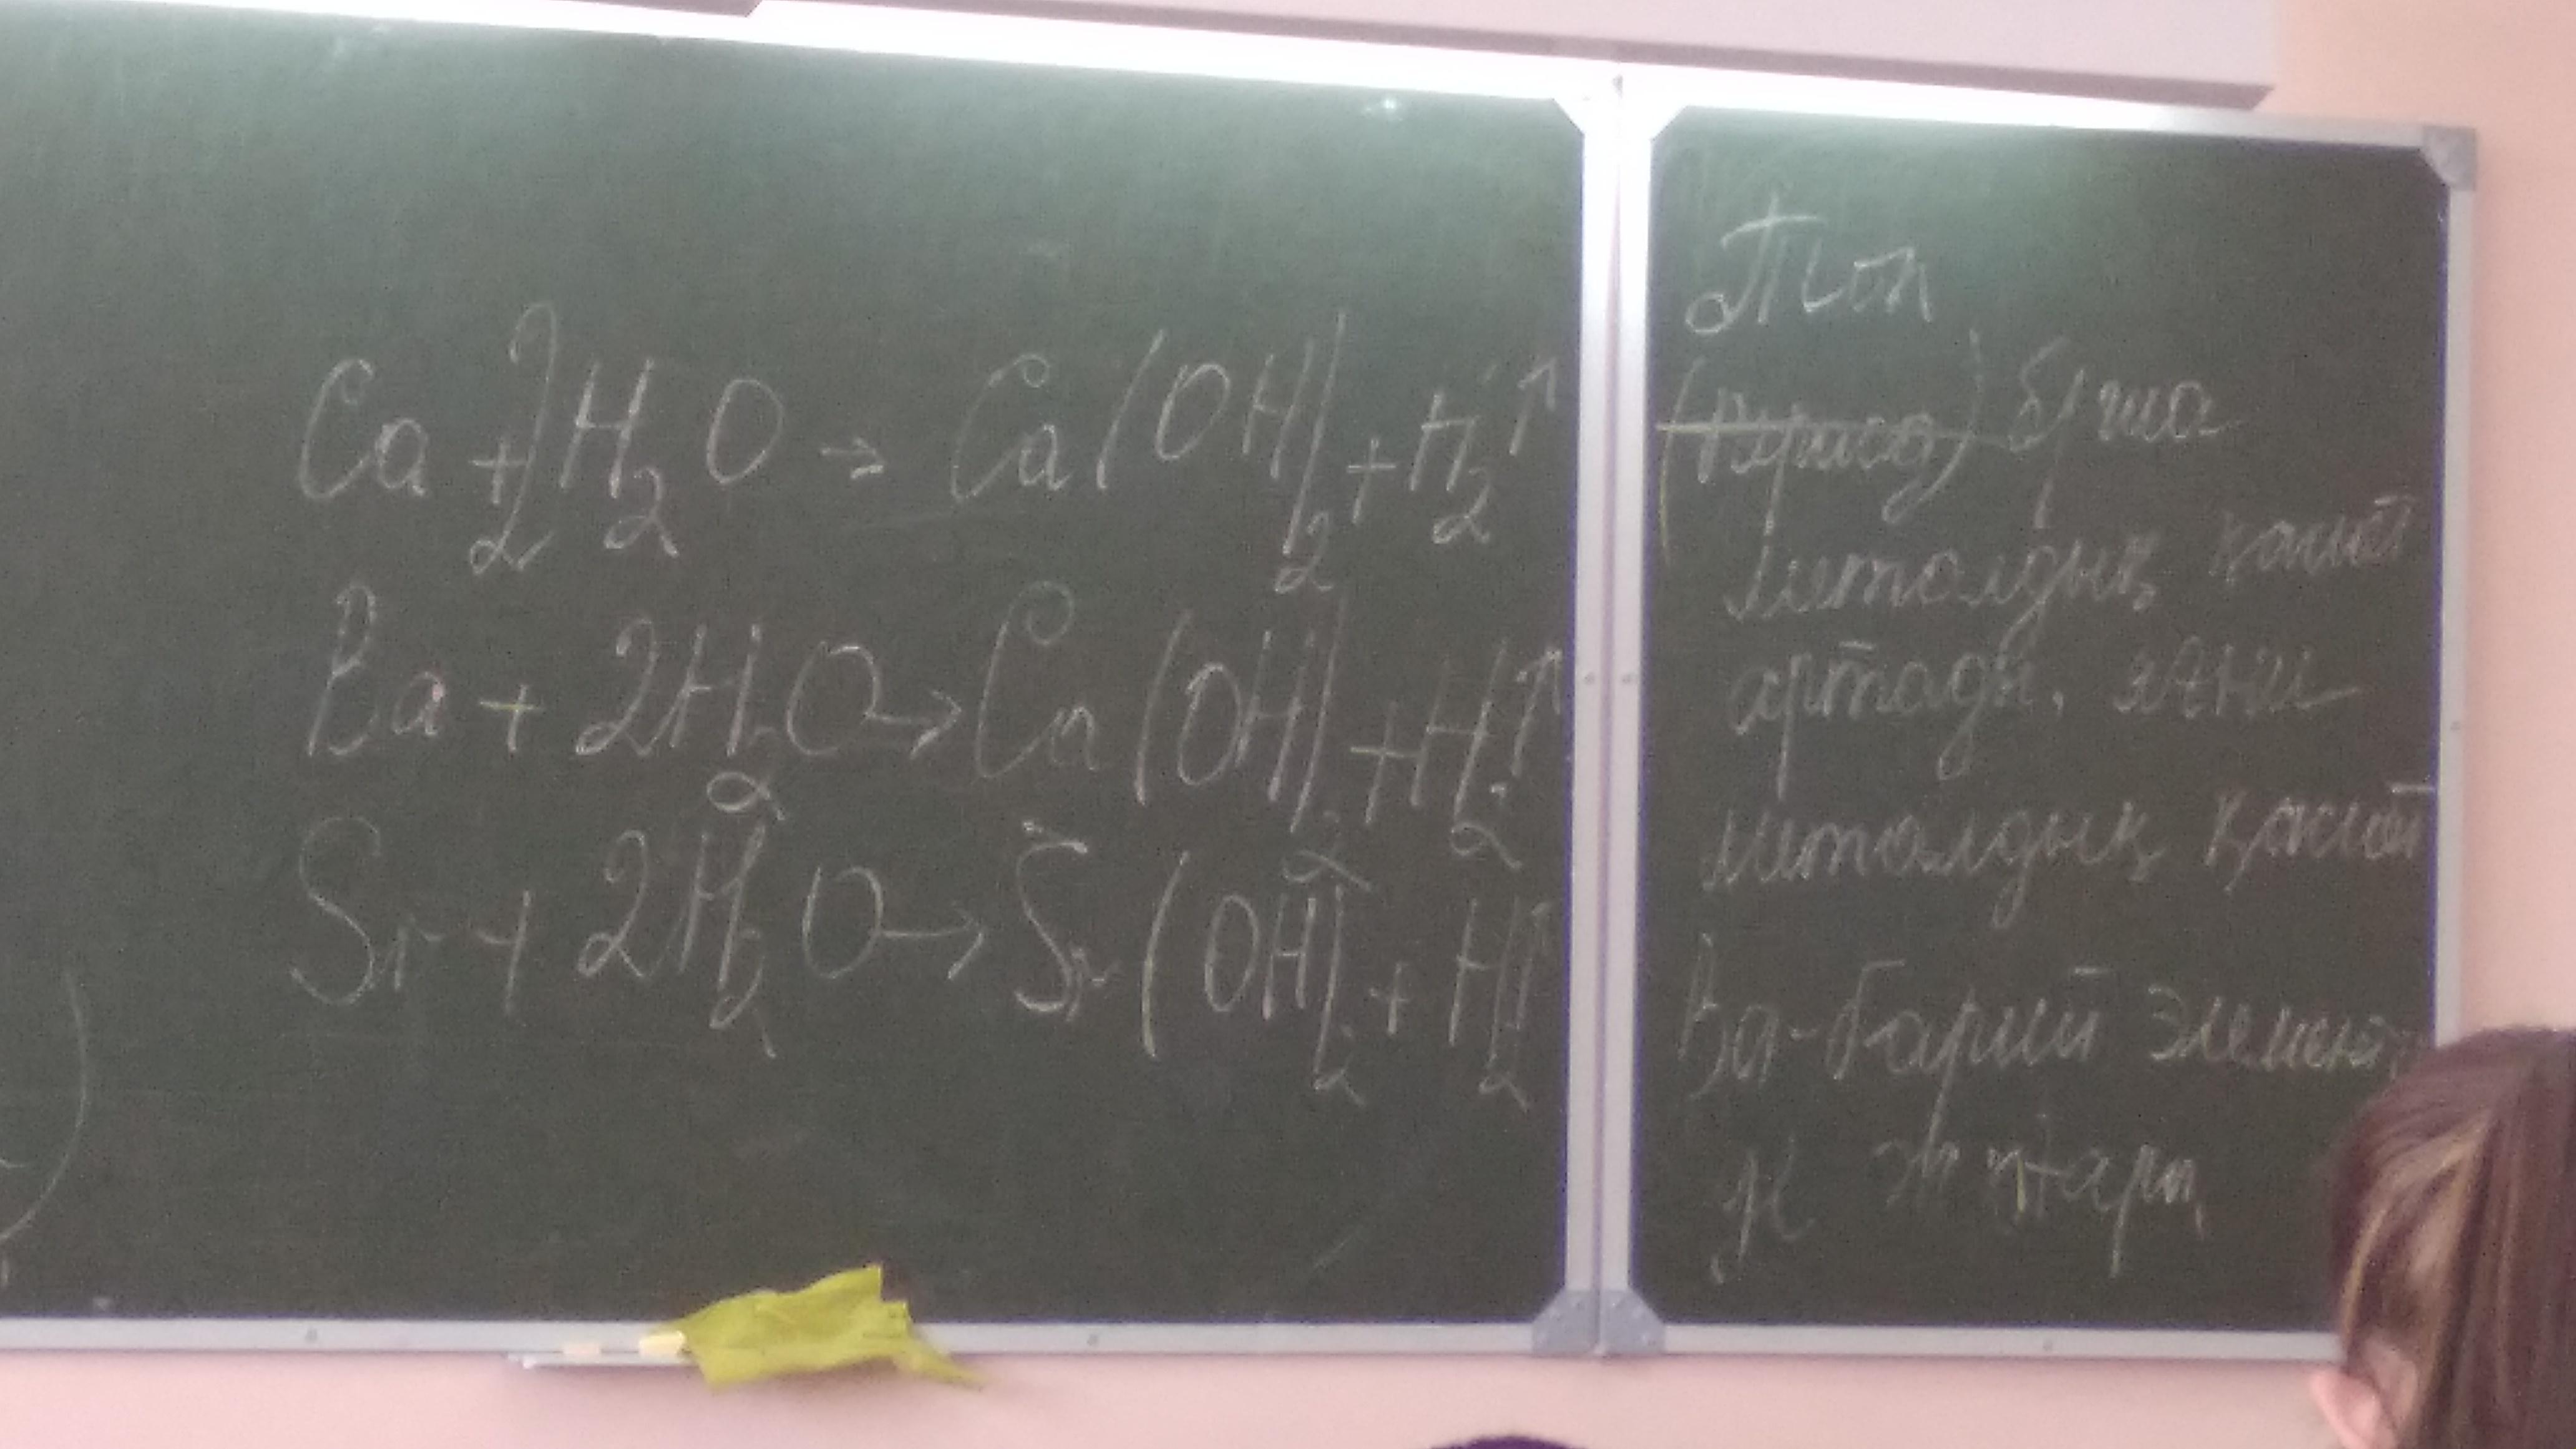 Ca + 2H₂O → Ca(OH)₂ + H₂↑
Ba + 2H₂O → Ca(OH)₂ + H₂↑
Sr + 2H₂O → Sr(OH)₂ + H₂↑
Топ
бʻрша
металдық қасиет
артады, яғни
металдық қасиет
Ba-барий элемент